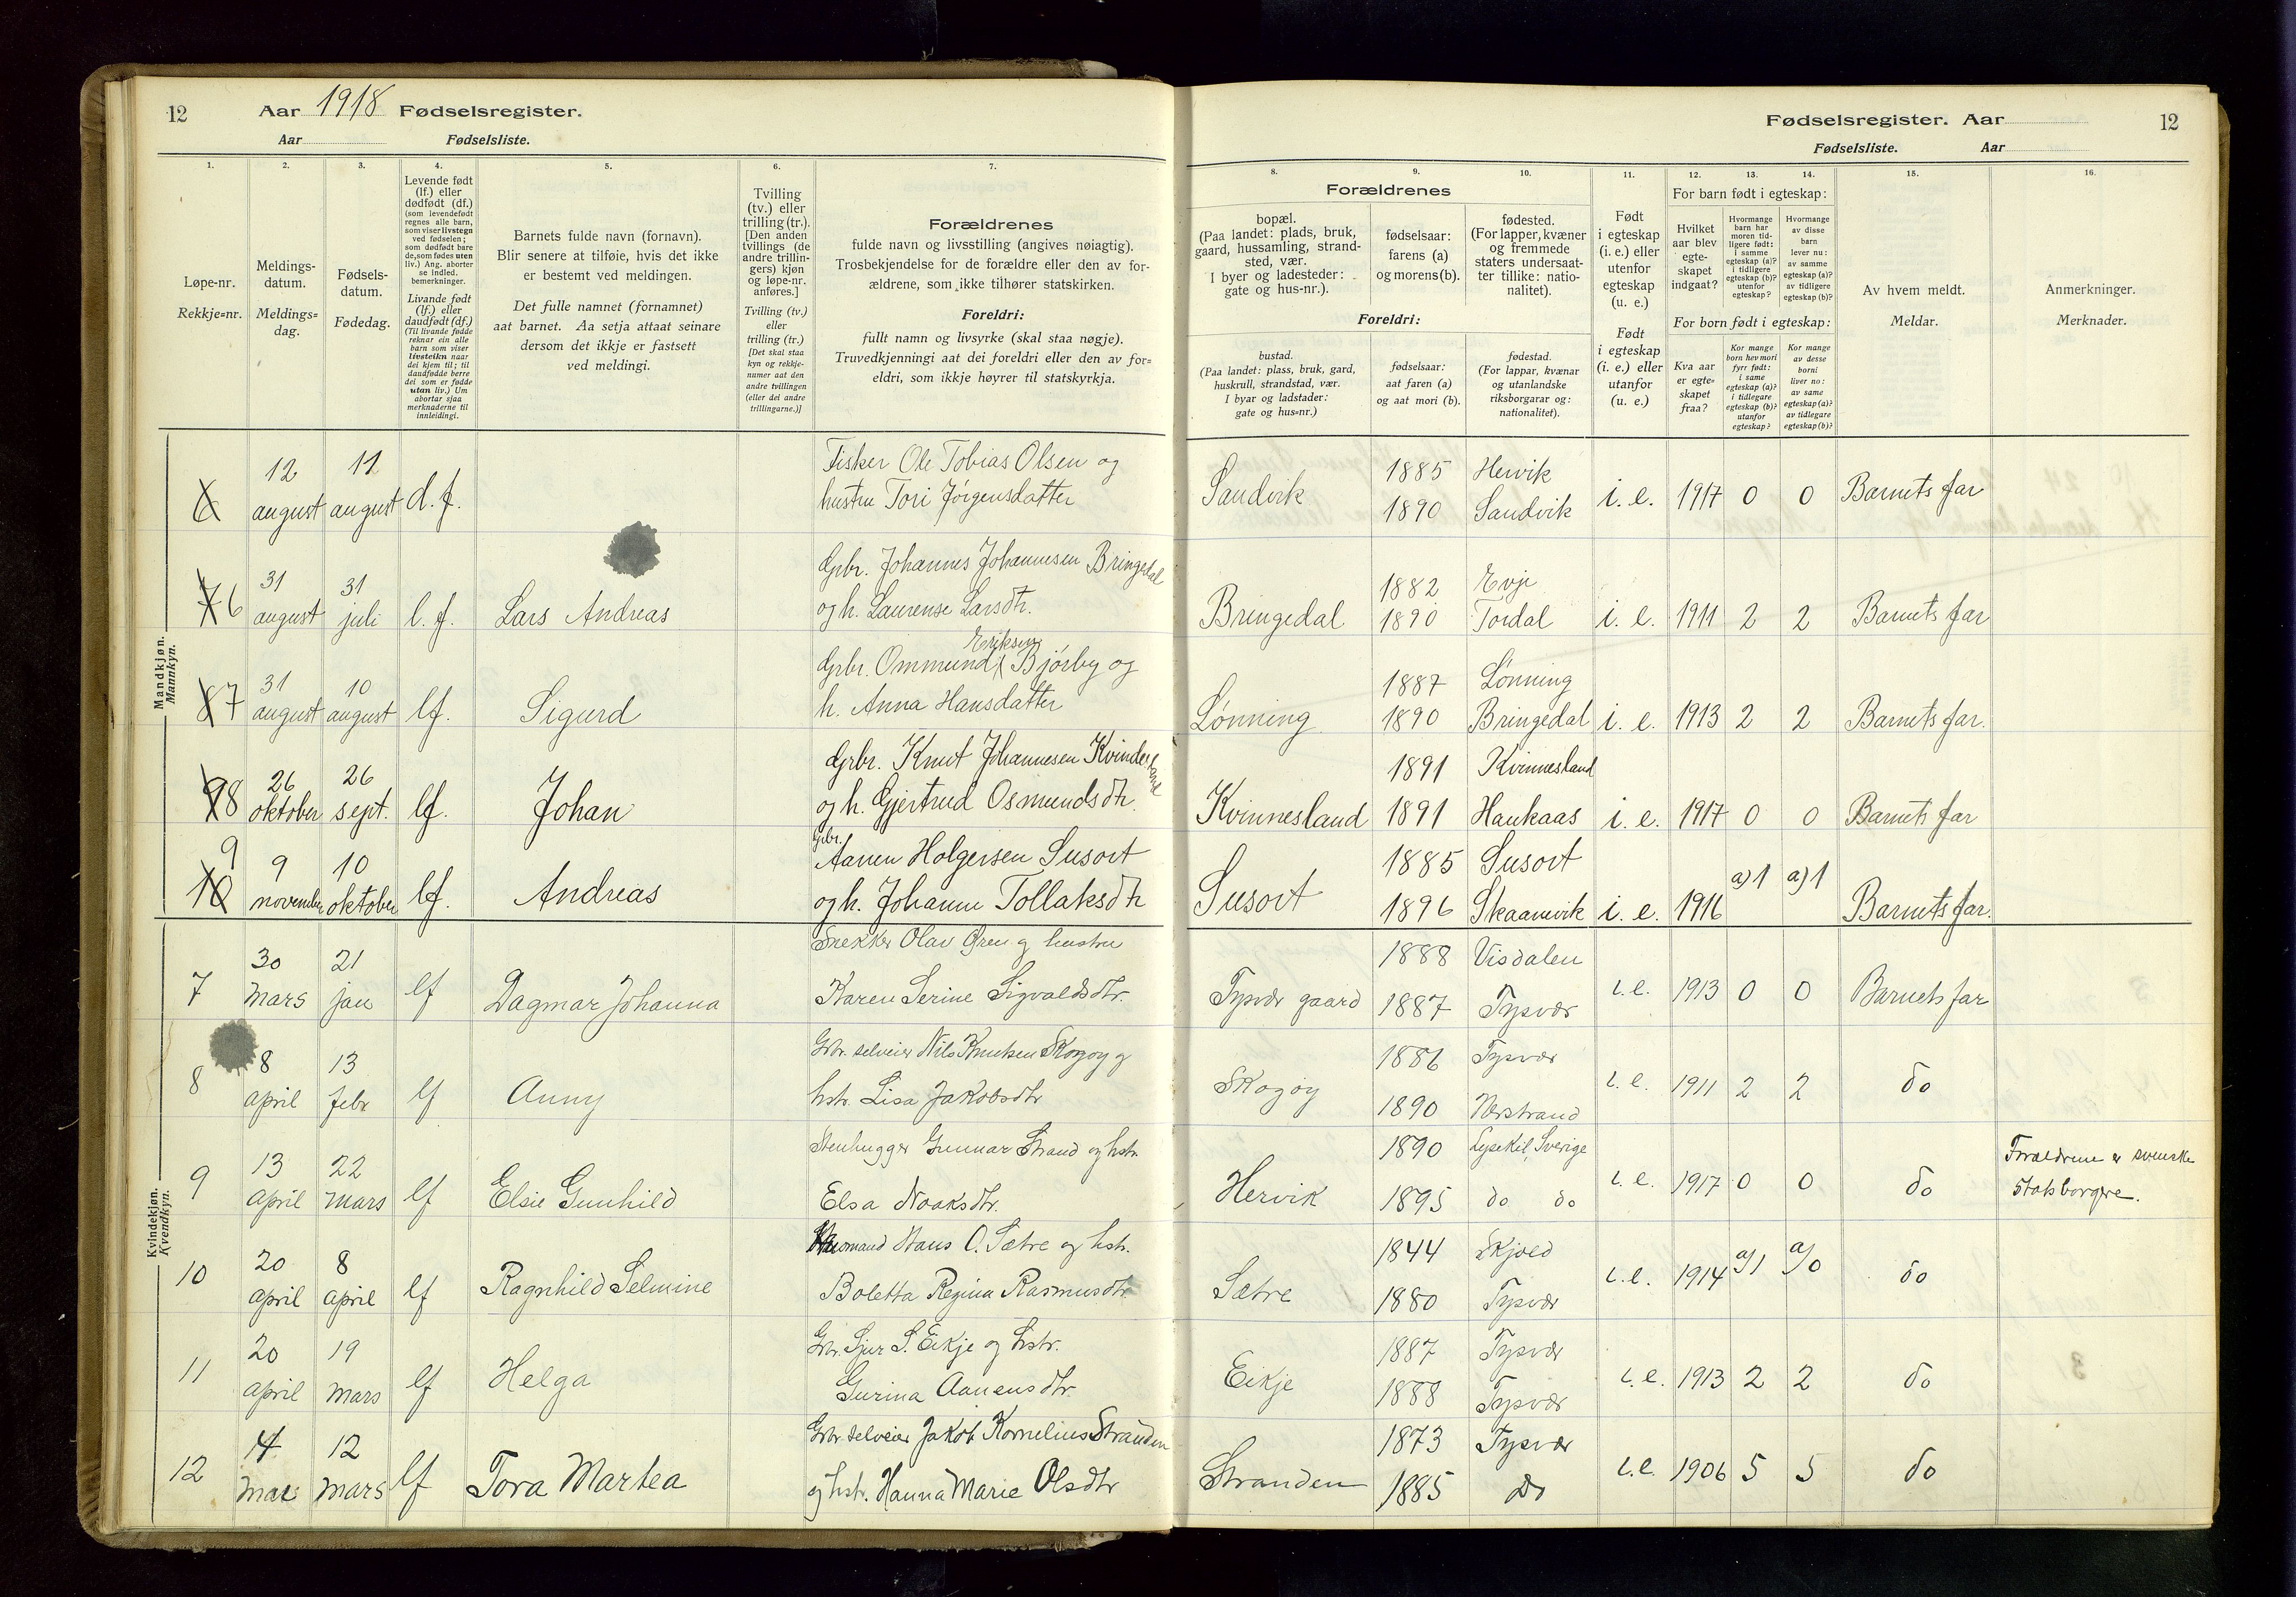 12 Aar 1918 Fødselsregister.
Aar Fødselsliste.
Fødselsregister. Aar 12
Fødselsliste. Aar
1. 2. 3. 4. 5. 6. 7. 8. 9. 10. 11. 12. 13. 14. 15. 16.
Løpe-nr.
Rekkje=nr.
Meldings-
datum.
Meldings=
dag.
Fødsels-
datum.
Fødedag.
Levende født
(lf.) eller
dødfødt (df.)
(som levendefødt
regnes alle barn,
som viser livstegn
ved fødselen;
som dødfødt bare
de, som fødes uten
liv.) Ang. aborter
se indled.
bemerkninger.
Livande født
(lf.) eller
daudfødt (df.)
(Til livande fødde
reknar ein alle
barn som viser
livsteikn naar
dei kjem til; til
daudfødde berre
dei som er fødde
utan liv.) Um
abortar sjaa
merknaderne til
innleidingi.
Barnets fulde navn (fornavn).
Blir senere at tilføie, hvis det ikke
er bestemt ved meldingen.
Det fulle namnet (fornamnet)
aat barnet. Aa setja attaat seinare
dersom det ikkje er fastsett
ved meldingi.
Tvilling
(tv.) eller
trilling (tr.).
[Den anden
tvillings (de
andre trillin-
gers) kjøn
og løpe-nr.
anføres.]
Tvilling (tv.)
eller
trilling (tr.)
[Det skal staa
kyn og rekkje-
numer aat den
andre tvillingen
(eller dei andre
trillingarne.)]
Forældrenes
fulde navn og livsstilling (angives nøiagtig).
Trosbekjendelse for de forældre eller den av for-
ældrene, som ikke tilhører statskirken.
Foreldri:
fullt namn og livsyrke (skal staa nøgje).
Truvedkjenningi aat dei foreldri eller den av for=
eldri, som ikkje høyrer til statskyrkja.
Forældrenes
bopæl.
(Paa landet: plads, bruk,
gaard, hussamling, strand-
sted, vær.
I byer og ladesteder:
gate og hus-nr.).
fødselsaar:
farens (a)
og morens (b).
fødested.
(For lapper, kvæner
og fremmede
staters undersaat-
ter tillike: natio-
nalitet).
Foreldri:
bustad.
(Paa landet: plass, bruk, gard,
huskrull, strandstad, vær.
I byar og ladstader:
gate og hus=nr.)
fødselsaar:
aat faren (a)
og aat mori (b).
fødestad.
(For lappar, kvænar
og utanlandske
riksborgarar og:
nationalitet).
Født
i egteskap
(i. e.) eller
utenfor
egteskap
(u. e.)
Født
i egteskap
(i. e.) eller
utanfor
(u. e.)
For barn født i egteskap:
Hvilket
aar blev
egte-
skapet
indgaat?
Hvormange
barn har
moren tid-
ligere født:
i samme
egteskap (a)?
i tidligere
egteskap (b)?
utenfor
egteskap?
Hvormange
av disse
barn
lever nu:
av samme
egteskap (a)?
av tidligere
egteskap (b)?
For born født i egteskap:
Kva aar
er egte=
skapet
fraa?
Kor mange
born hev mori
fyrr født:
i same
egteskap (a)?
i tidlegare
egteskap (b)?
utanfor
egteskap?
Kor mange
av desse
borni
liver no:
av same
egteskap (a)?
av tidlegare
egteskap (b)?
Av hvem meldt.
Meldar.
Anmerkninger.
Merknader.
Mandkjøn.
Mannkyn.
6 12 august 11 august d. f. Fisker Ole Tobias Olsen og
hustru Tori Jørgensdatter Sandvik 1885 Hervik
1890 Sandvik i. e. 1917 0 0 Barnets far
7 6 31 august 31 juli l. f. Lars Andreas Grbr. Johannes Johannesen Bringedal
og h. Laurense Larsdtr. Bringedal 1882 Evje
1890 Tordal i. e. 1911 2 2 Barnets far
8 7 31 august 10 august lf. Sigurd Grbr. Ommund Eriksen Bjørby og
h. Anna Hansdatter Lønning 1887 Lønning
1890 Bringedal i. e. 1913 2 2 Barnets far.
9 8 26 oktober 26 sept. lf. Johan Grbr. Knut Johannesen Kvindesland
og h. Gjertrud Osmundsdtr. Kvinnesland 1891 Kvinnesland
1891 Haukaas i. e. 1917 0 0 Barnets far
10 9 9 november 10 oktober lf. Andreas Grbr. Aanen Holgersen Susort
og h. Johanne Tollaksdtr Susort 1885 Susort
1896 Skaanevik i. e. 1916 a) 1 a) 1 Barnets far.
Kvindekjøn.
Kvendkyn.
7 30 mars 21 jan lf Dagmar Johanna Snekker Olav Gren og hustru
Karen Serine Sigvaldsdtr. Tysvær gaard 1888 Visdalen
1887 Tysvær i. e. 1913 0 0 Barnets far
8 8 april 13 febr lf Anny Grbr. selveier Nils Knutsen Skogøy og
hstr. Lisa Jakobsdtr Skogøy 1886 Tysvær
1890 Nerstrand i. e. 1911 2 2 do
9 13 april 22 mars lf Elsie Gunhild Stenhugger Gunnar Strand og hstr.
Elsa Noaksdtr. Hervik 1890 Lysekil, Sverige
1895 do do i. e. 1917 0 0 do Forældrene er svenske
statsborgere.
10 20 april 8 april lf Ragnhild Selmine Husmand Hans O. Sætre og hstr.
Boletta Regina Rasmusdtr Sætre 1844 Skjold
1880 Tysvær i. e. 1914 a/1 a/0 do
11 20 april 19 mars lf Helga Grbr. Sjur S. Eikje og hstr.
Gurina Aanensdtr. Eikje 1887 Tysvær
1888 Tysvær i. e. 1913 2 2 do
12 4 mai 12 mars lf Tora Martea Grbr. selveier Jakob Kornelius Stranden
og hstr. Hanna Marie Olsdtr Stranden 1873 Tysvær
1885 Do i. e. 1906 5 5 do